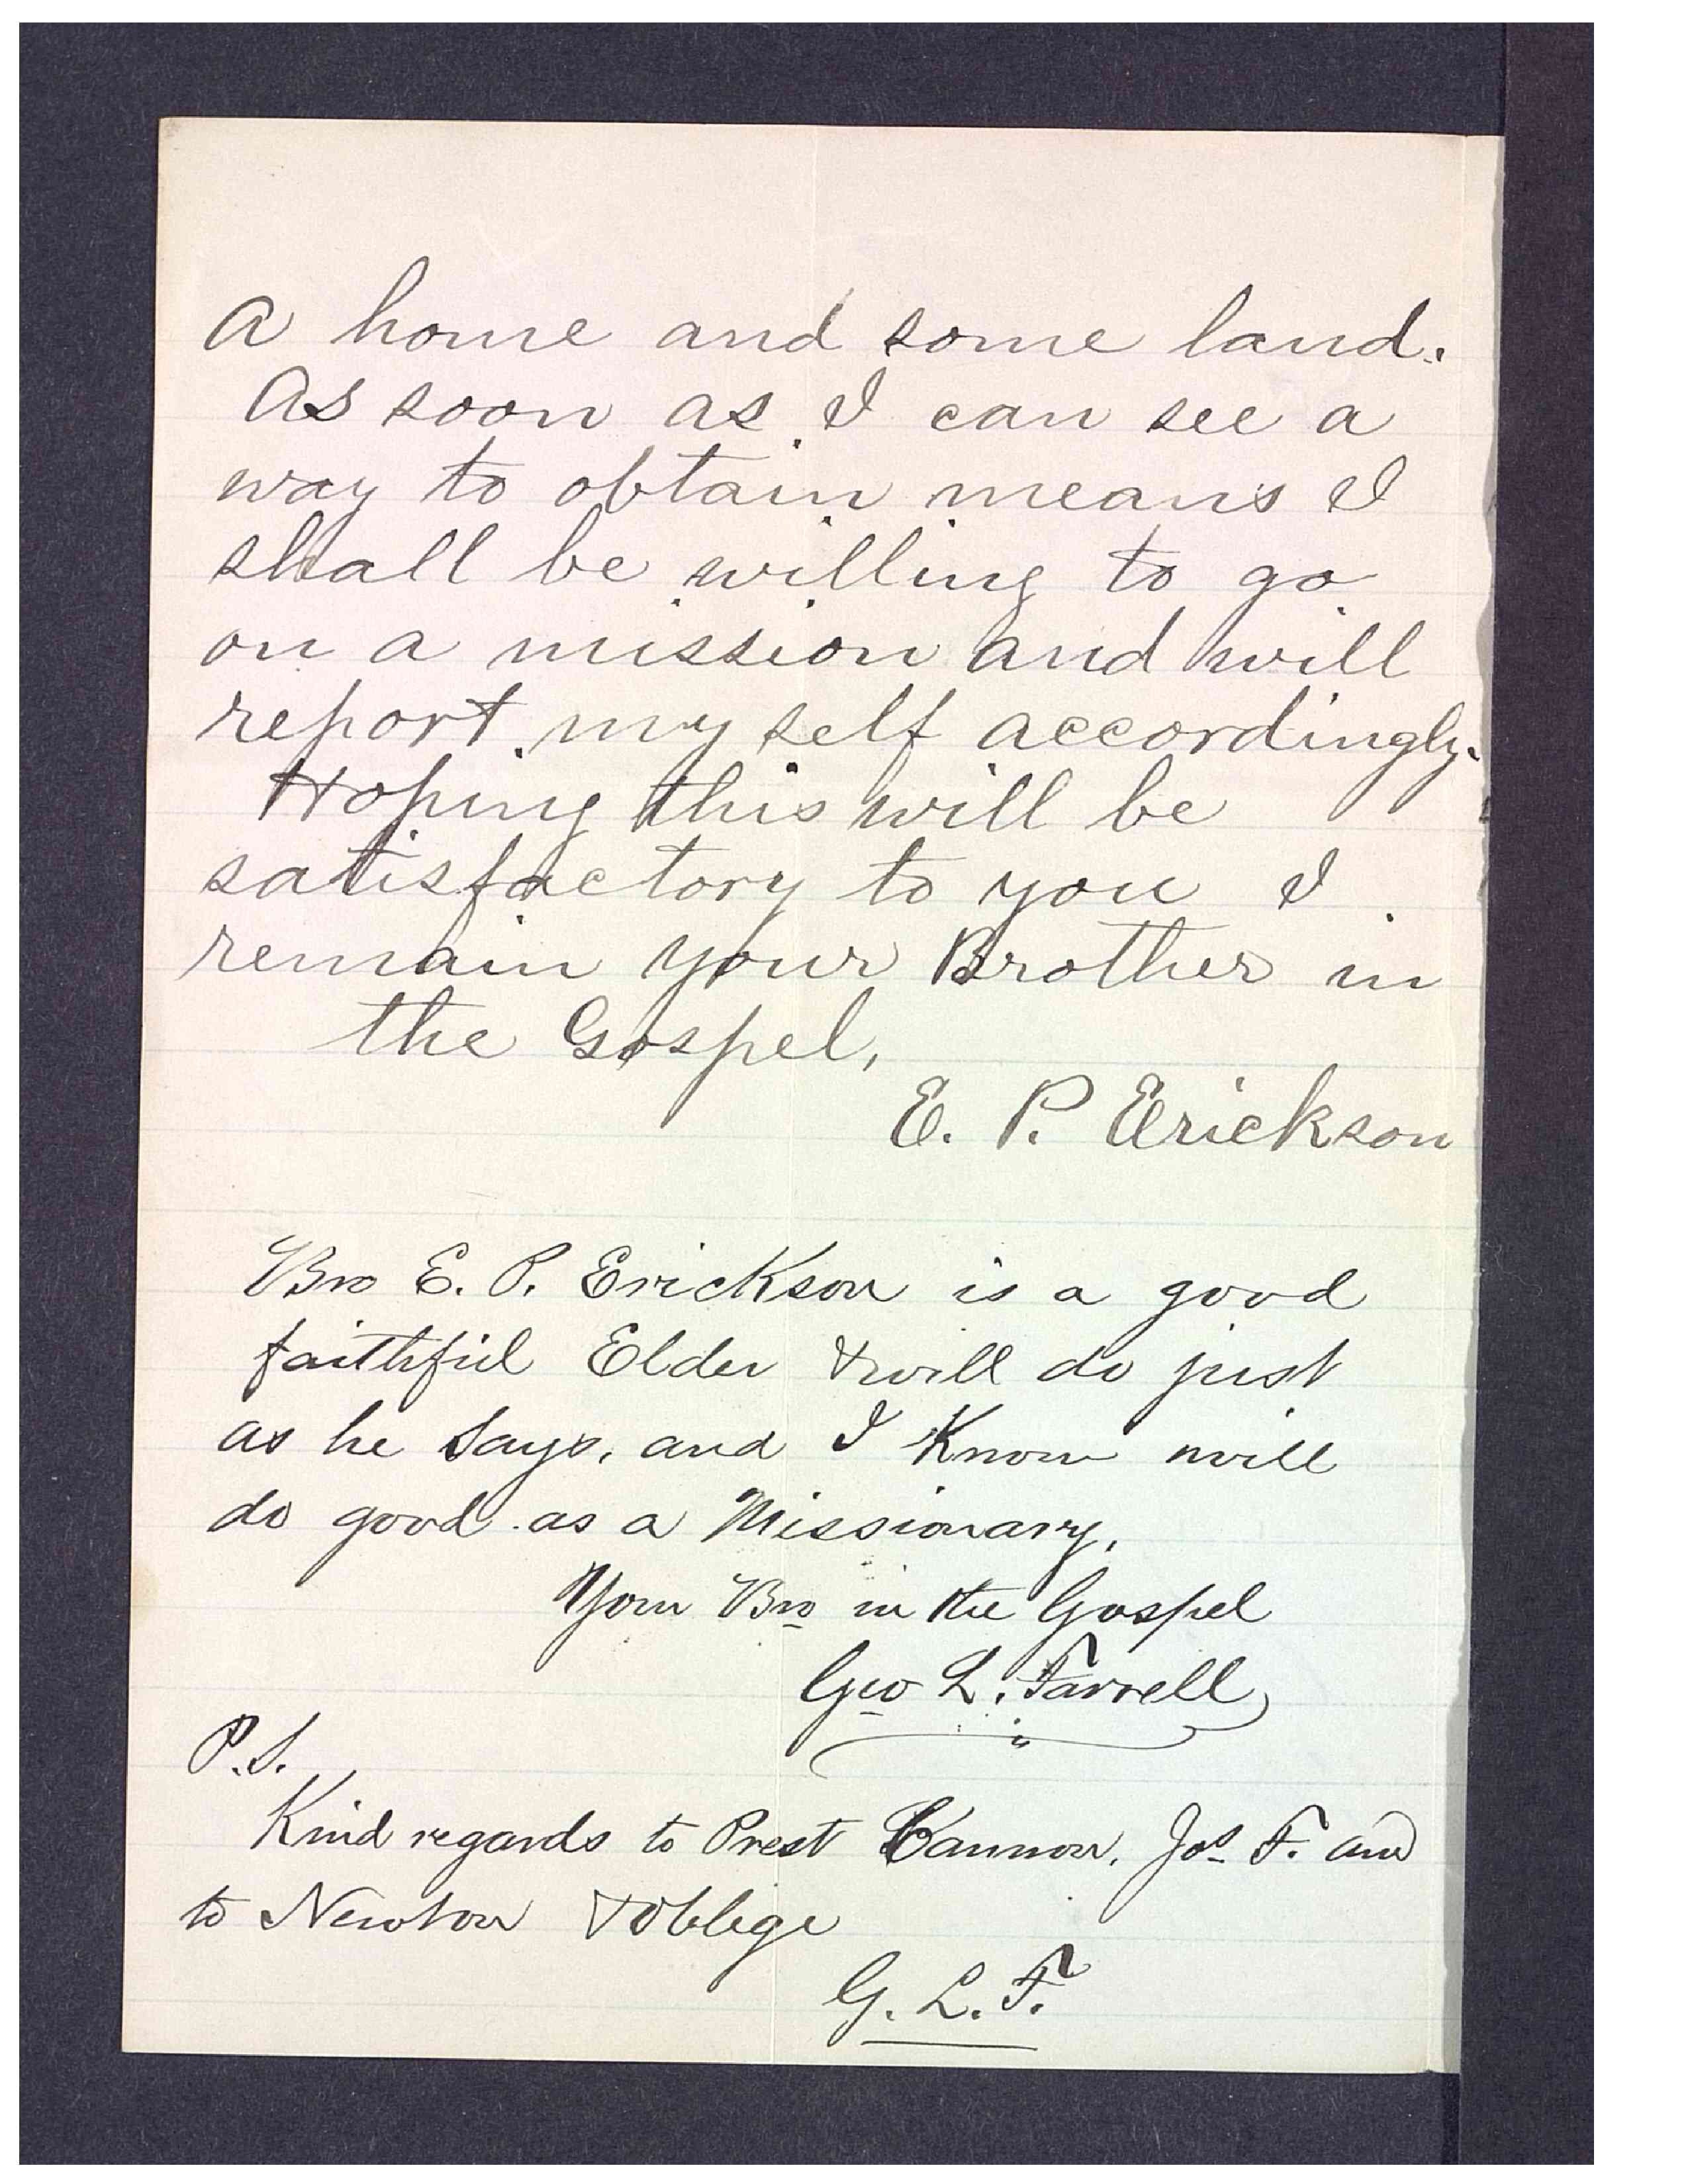 a home and some land.
As soon as I can see a
way to obtain means I
shall be willing to go
on a mission and will
report my self accordingly.
Hoping this will be
satisfactory to you I
remain your Brother in
the Gospel,
E. P. Erickson
Bro E. P. Erickson is a good
faithful Elder & will do just
as he says, and I Know will
do good as a Missionary.
Your Bro in the Gospel
Geo L. Farrell
P.S.
Kind regards to Prest Cannon, Jos F. and
to Newton & Oblige
G. L. F.